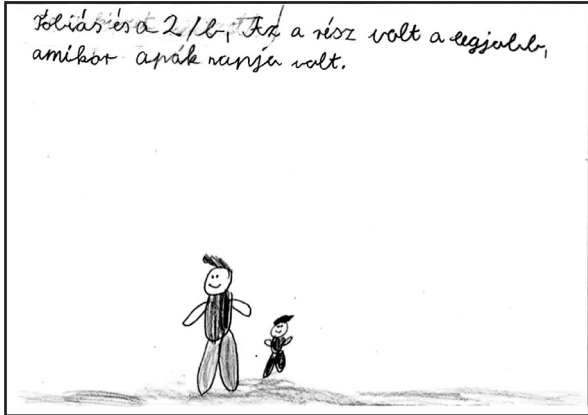 Tóbiás és a 2/b, Az a rész volt a legjobb,
amikor apák napja volt.